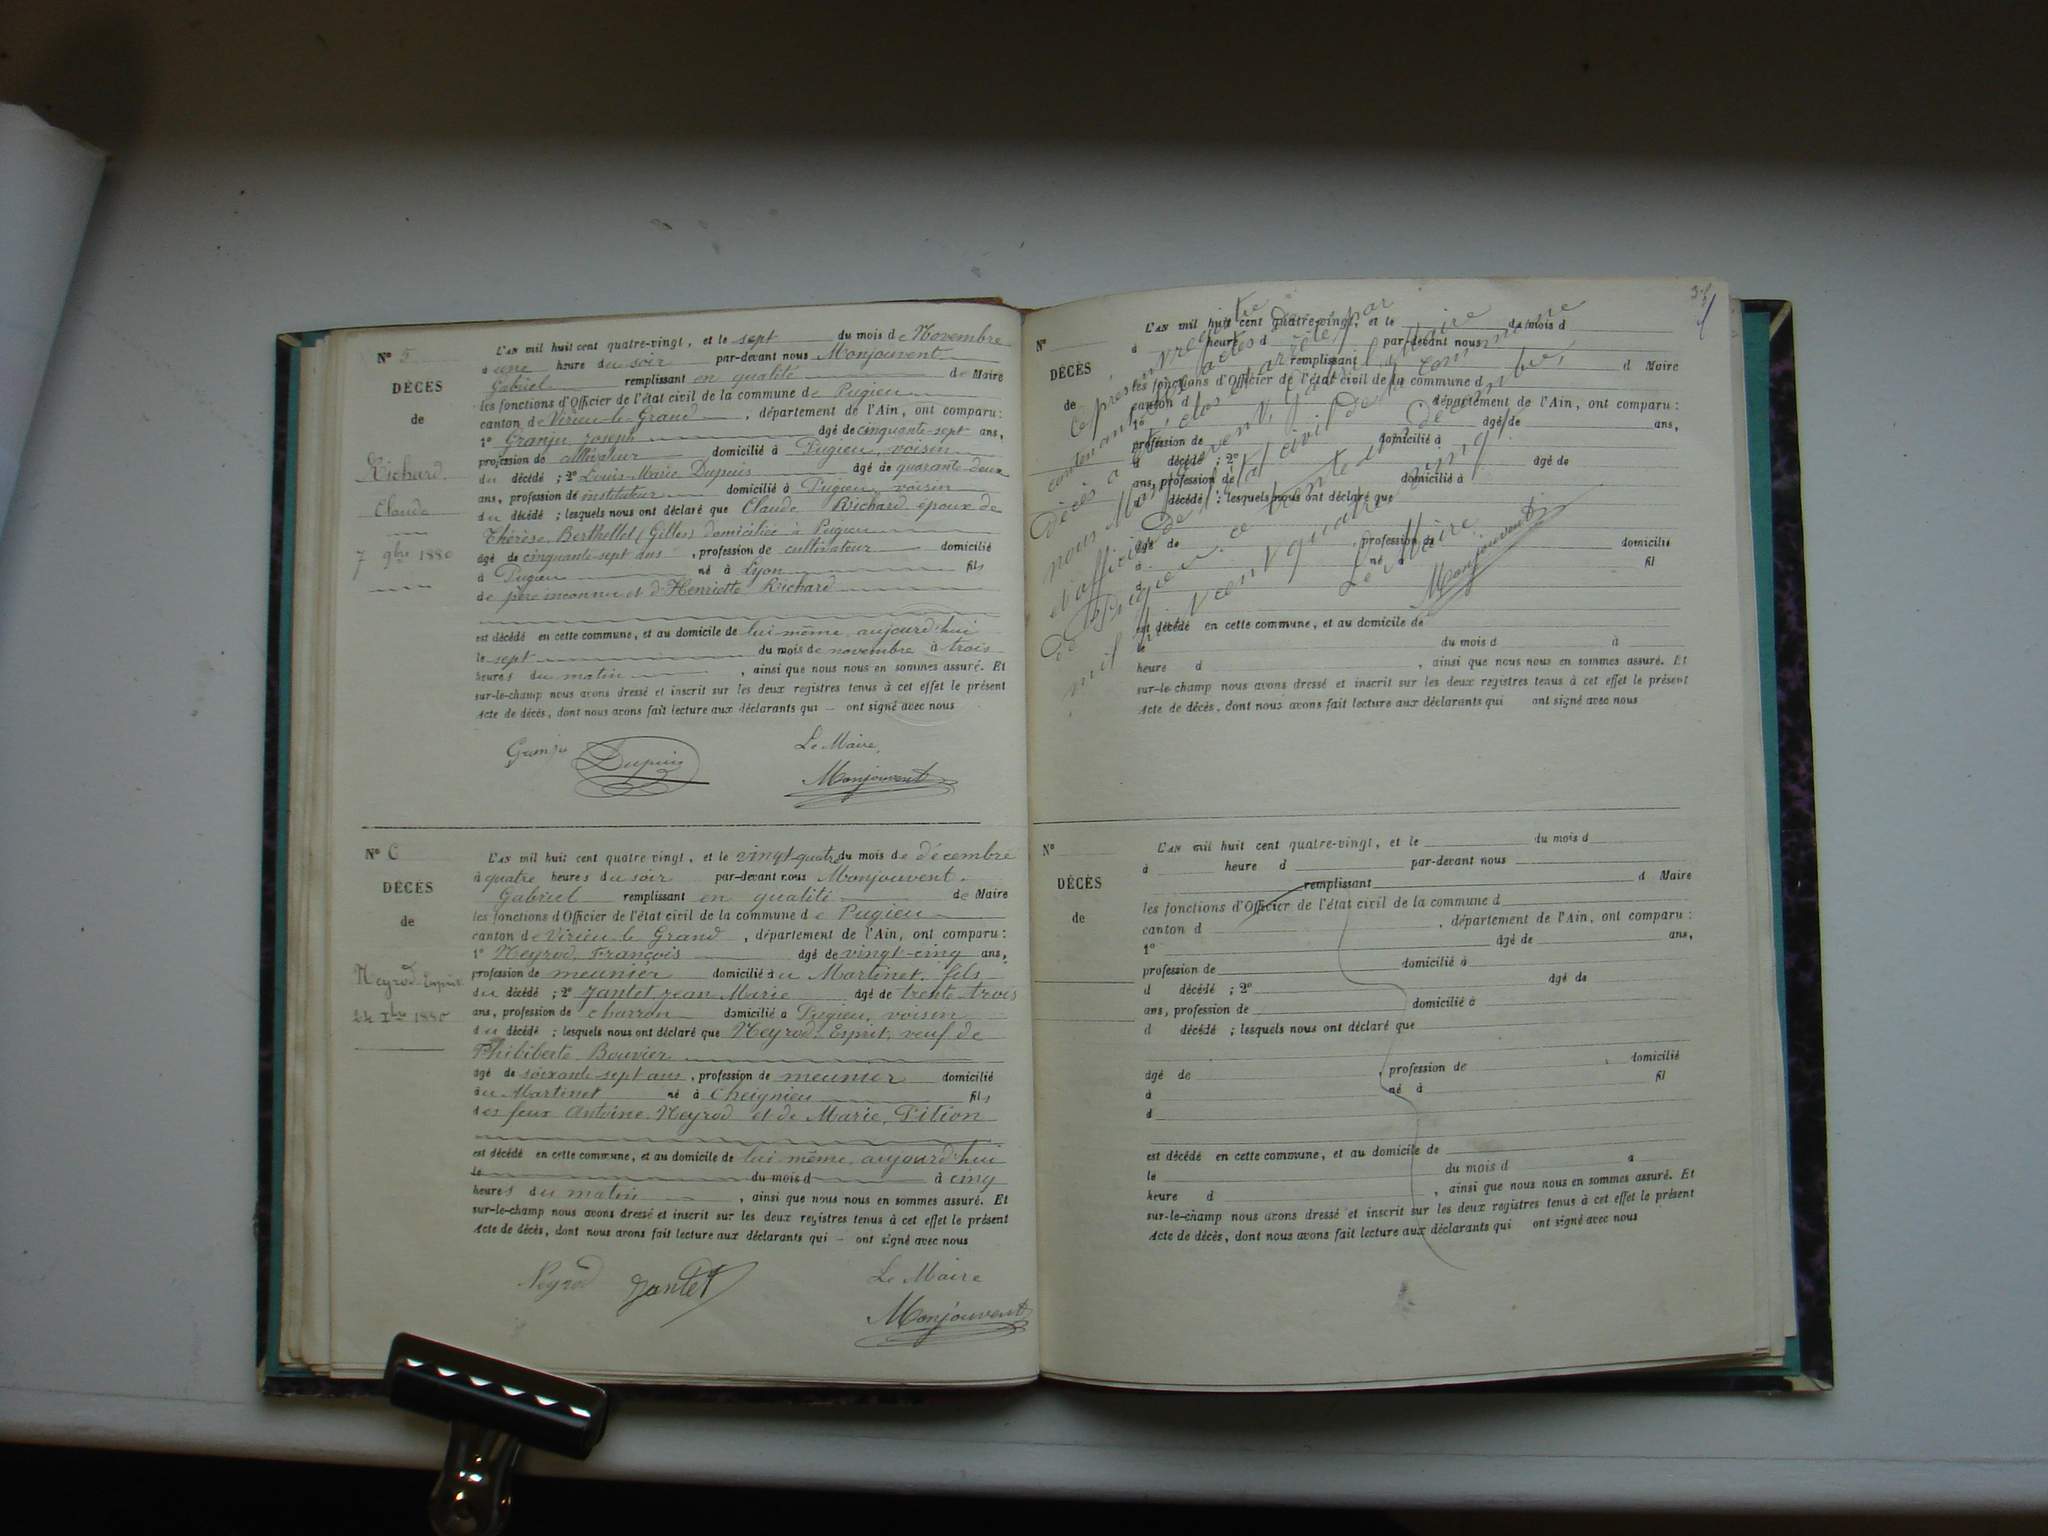 N° 5
DÉCÈS
de
Richard
Claude
7 9bre 1880
L'AN mil huit cent quatre-vingt, et le sept du mois de Novembre
à une heure du soir par-devant nous Monjouvent
Gabriel remplissant en qualité de Maire
les fonctions d'Officier de l'état civil de la commune de Pugieu
canton de Virieu-le-Grand, département de l'Ain, ont comparu :
1° Granju Joseph âgé de cinquante-sept ans,
profession de cultivateur domicilié à Pugieu, voisin
du décédé ; 2° Louis-Marie Dupuis âgé de quarante-deux
ans, profession de instituteur domicilié à Pugieu, voisin
du décédé ; lesquels nous ont déclaré que Claude Richard, époux de
Thérèse Berthellet (Gilles) domiciliée à Pugieu
âgé de cinquante-sept ans, profession de cultivateur domicilié
à Pugieu né à Lyon fils
de père inconnu et d'Henriette Richard
est décédé en cette commune, et au domicile de lui-même, aujourd'hui
le sept du mois de novembre à trois
heures du matin, ainsi que nous nous en sommes assuré. Et
sur-le-champ nous avons dressé et inscrit sur les deux registres tenus à cet effet le présent
Acte de décès, dont nous avons fait lecture aux déclarants qui – ont signé avec nous
Granju Dupuis Le Maire,
Monjouvent
N° 6
DÉCÈS
de
Neyrod Esprit
24 Xbre 1880
L'AN mil huit cent quatre-vingt, et le vingt-quatre du mois de décembre
à quatre heures du soir par-devant nous Monjouvent
Gabriel remplissant en qualité de Maire
les fonctions d'Officier de l'état civil de la commune de Pugieu
canton de Virieu-le-Grand, département de l'Ain, ont comparu :
1° Neyrod, François âgé de vingt-cinq ans,
profession de meunier domicilié au Martinet, fils
du décédé ; 2° Jantet, Jean Marie âgé de trente-trois
ans, profession de charron domicilié à Pugieu, voisin
du décédé ; lesquels nous ont déclaré que Neyrod, Esprit, veuf de
Philiberte Bouvier
âgé de soixante-sept ans, profession de meunier domicilié
au Martinet né à Cheignieu fils
des feux Antoine Neyrod et de Marie, Pition
est décédé en cette commune, et au domicile de lui-même, aujourd'hui
le du mois d à cinq
heures du matin, ainsi que nous nous en sommes assuré. Et
sur-le-champ nous avons dressé et inscrit sur les deux registres tenus à cet effet le présent
Acte de décès, dont nous avons fait lecture aux déclarants qui – ont signé avec nous
Neyrod Jantet Le Maire
Monjouvent
N°
DÉCÈS
de
L'AN mil huit cent quatre-vingt, et le du mois d
à heure d par-devant nous
remplissant d Maire
les fonctions d'Officier de l'état civil de la commune d
canton d département de l'Ain, ont comparu :
1° âgé de ans,
profession de domicilié à
d décédé ; 2° âgé de
ans, profession de domicilié à
d décédé ; lesquels nous ont déclaré que
âgé de profession de domicilié
à né à fil
d
est décédé en cette commune, et au domicile de
le du mois d à
heure d, ainsi que nous nous en sommes assuré. Et
sur-le-champ nous avons dressé et inscrit sur les deux registres tenus à cet effet le présent
Acte de décès, dont nous avons fait lecture aux déclarants qui ont signé avec nous
Ce présent registre de
contenant actes
Décès a été clos et arrêté par
nous Monjouvent, Gabriel Maire
et officier de l'état civil de la commune
de Pugieu, ce trente un Décembre,
mil huit cent quatre vingt
Le Maire
Monjouvent
N°
DÉCÈS
de
L'AN mil huit cent quatre-vingt, et le du mois d
à heure d par-devant nous
remplissant d Maire
les fonctions d'Officier de l'état civil de la commune d
canton d, département de l'Ain, ont comparu :
1° âgé de ans,
profession de domicilié à
d décédé ; 2° âgé de
ans, profession de domicilié à
d décédé ; lesquels nous ont déclaré que
âgé de, profession de domicilié
à né à fil
d
est décédé en cette commune, et au domicile de
le du mois d à
heure d, ainsi que nous nous en sommes assuré. Et
sur-le-champ nous avons dressé et inscrit sur les deux registres tenus à cet effet le présent
Acte de décès, dont nous avons fait lecture aux déclarants qui ont signé avec nous